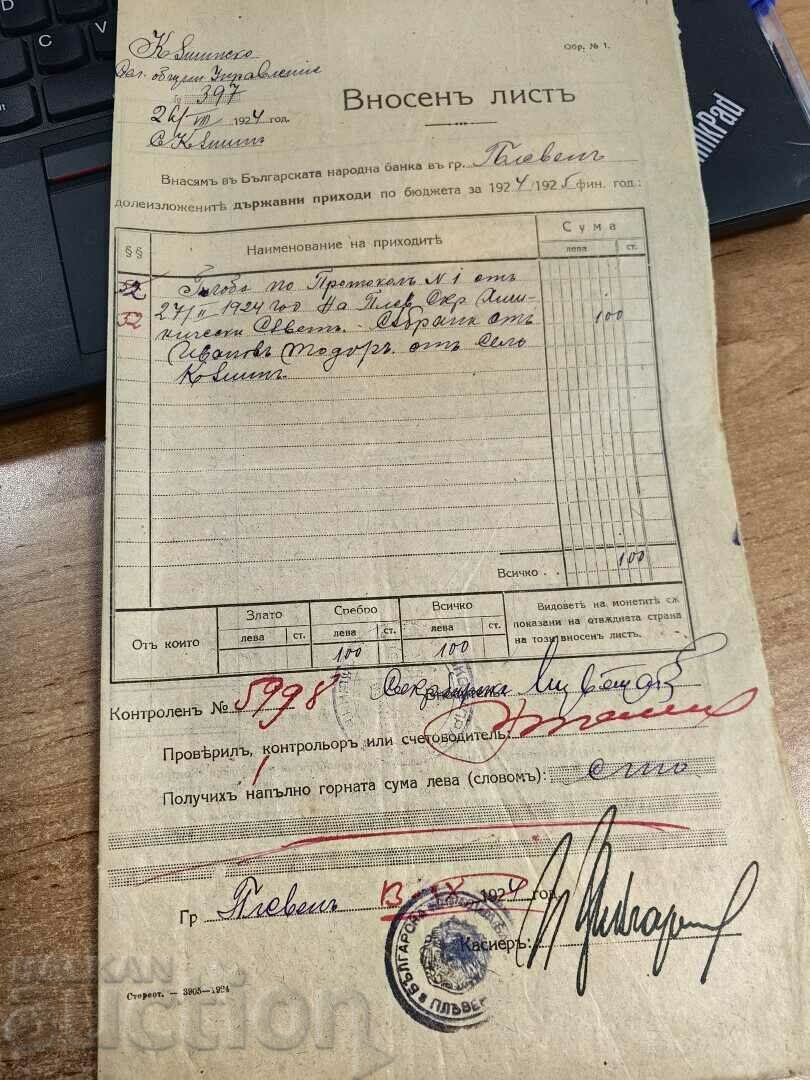 Обр. № 1.
общин Управление
№ 397
26/VIII 1924 год.
Вносенъ листъ
Внасямъ въ Българската народна банка въ гр. Плевенъ
долеизложенитѣ държавни приходи по бюджета за 1924/1925 фин. год.:
§§ Наименование на приходитѣ Сума
лева ст.
52 Глоба по Протоколъ N 1 отъ
52 27/II 1924 год На Плев. Окр
Съветъ. Събрани отъ 100
Ивановъ Тодоръ. отъ Село
Всичко . . 100
Отъ които Злато Сребро Всичко
лева ст. лева ст. лева ст.
100 100
Видоветѣ на монетитѣ сѫ
показани на отвждната страна
на този вносенъ листъ.
Контроленъ № 5998
Провѣрилъ, контрольоръ или счетоводитель:
Получихъ напълно горната сума лева (словомъ): сто
Гр Плевенъ 13 - IX 1924 год.
Касиеръ:
БЪЛГАРСКА
ПЛѢВЕНЪ
Стереот. — 3905—1924
ThinkPad
BALKAN
auction